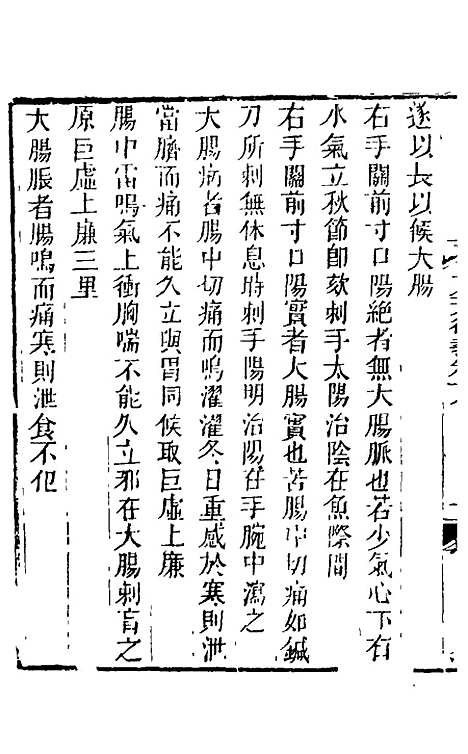 遂以長以候大腸
右手關前寸口陽絶者無大腸脈也若少氣心下有
水氣立秋節即欬刺手太陽治陰在魚際間
右手關前寸口陽實者大腸實也苦腸中切痛如鍼
刀所刺無休息時刺手陽明治陽在手腕中瀉之
大腸病者腸中切痛而鳴濯濯冬日重感於寒則泄
當臍而痛不能久立與胃同候取巨虛上廉
腸中雷鳴氣上衝胸喘不能久立邪在大腸刺肓之
原巨虛上廉三里
大腸脹者腸鳴而痛寒則泄食不化